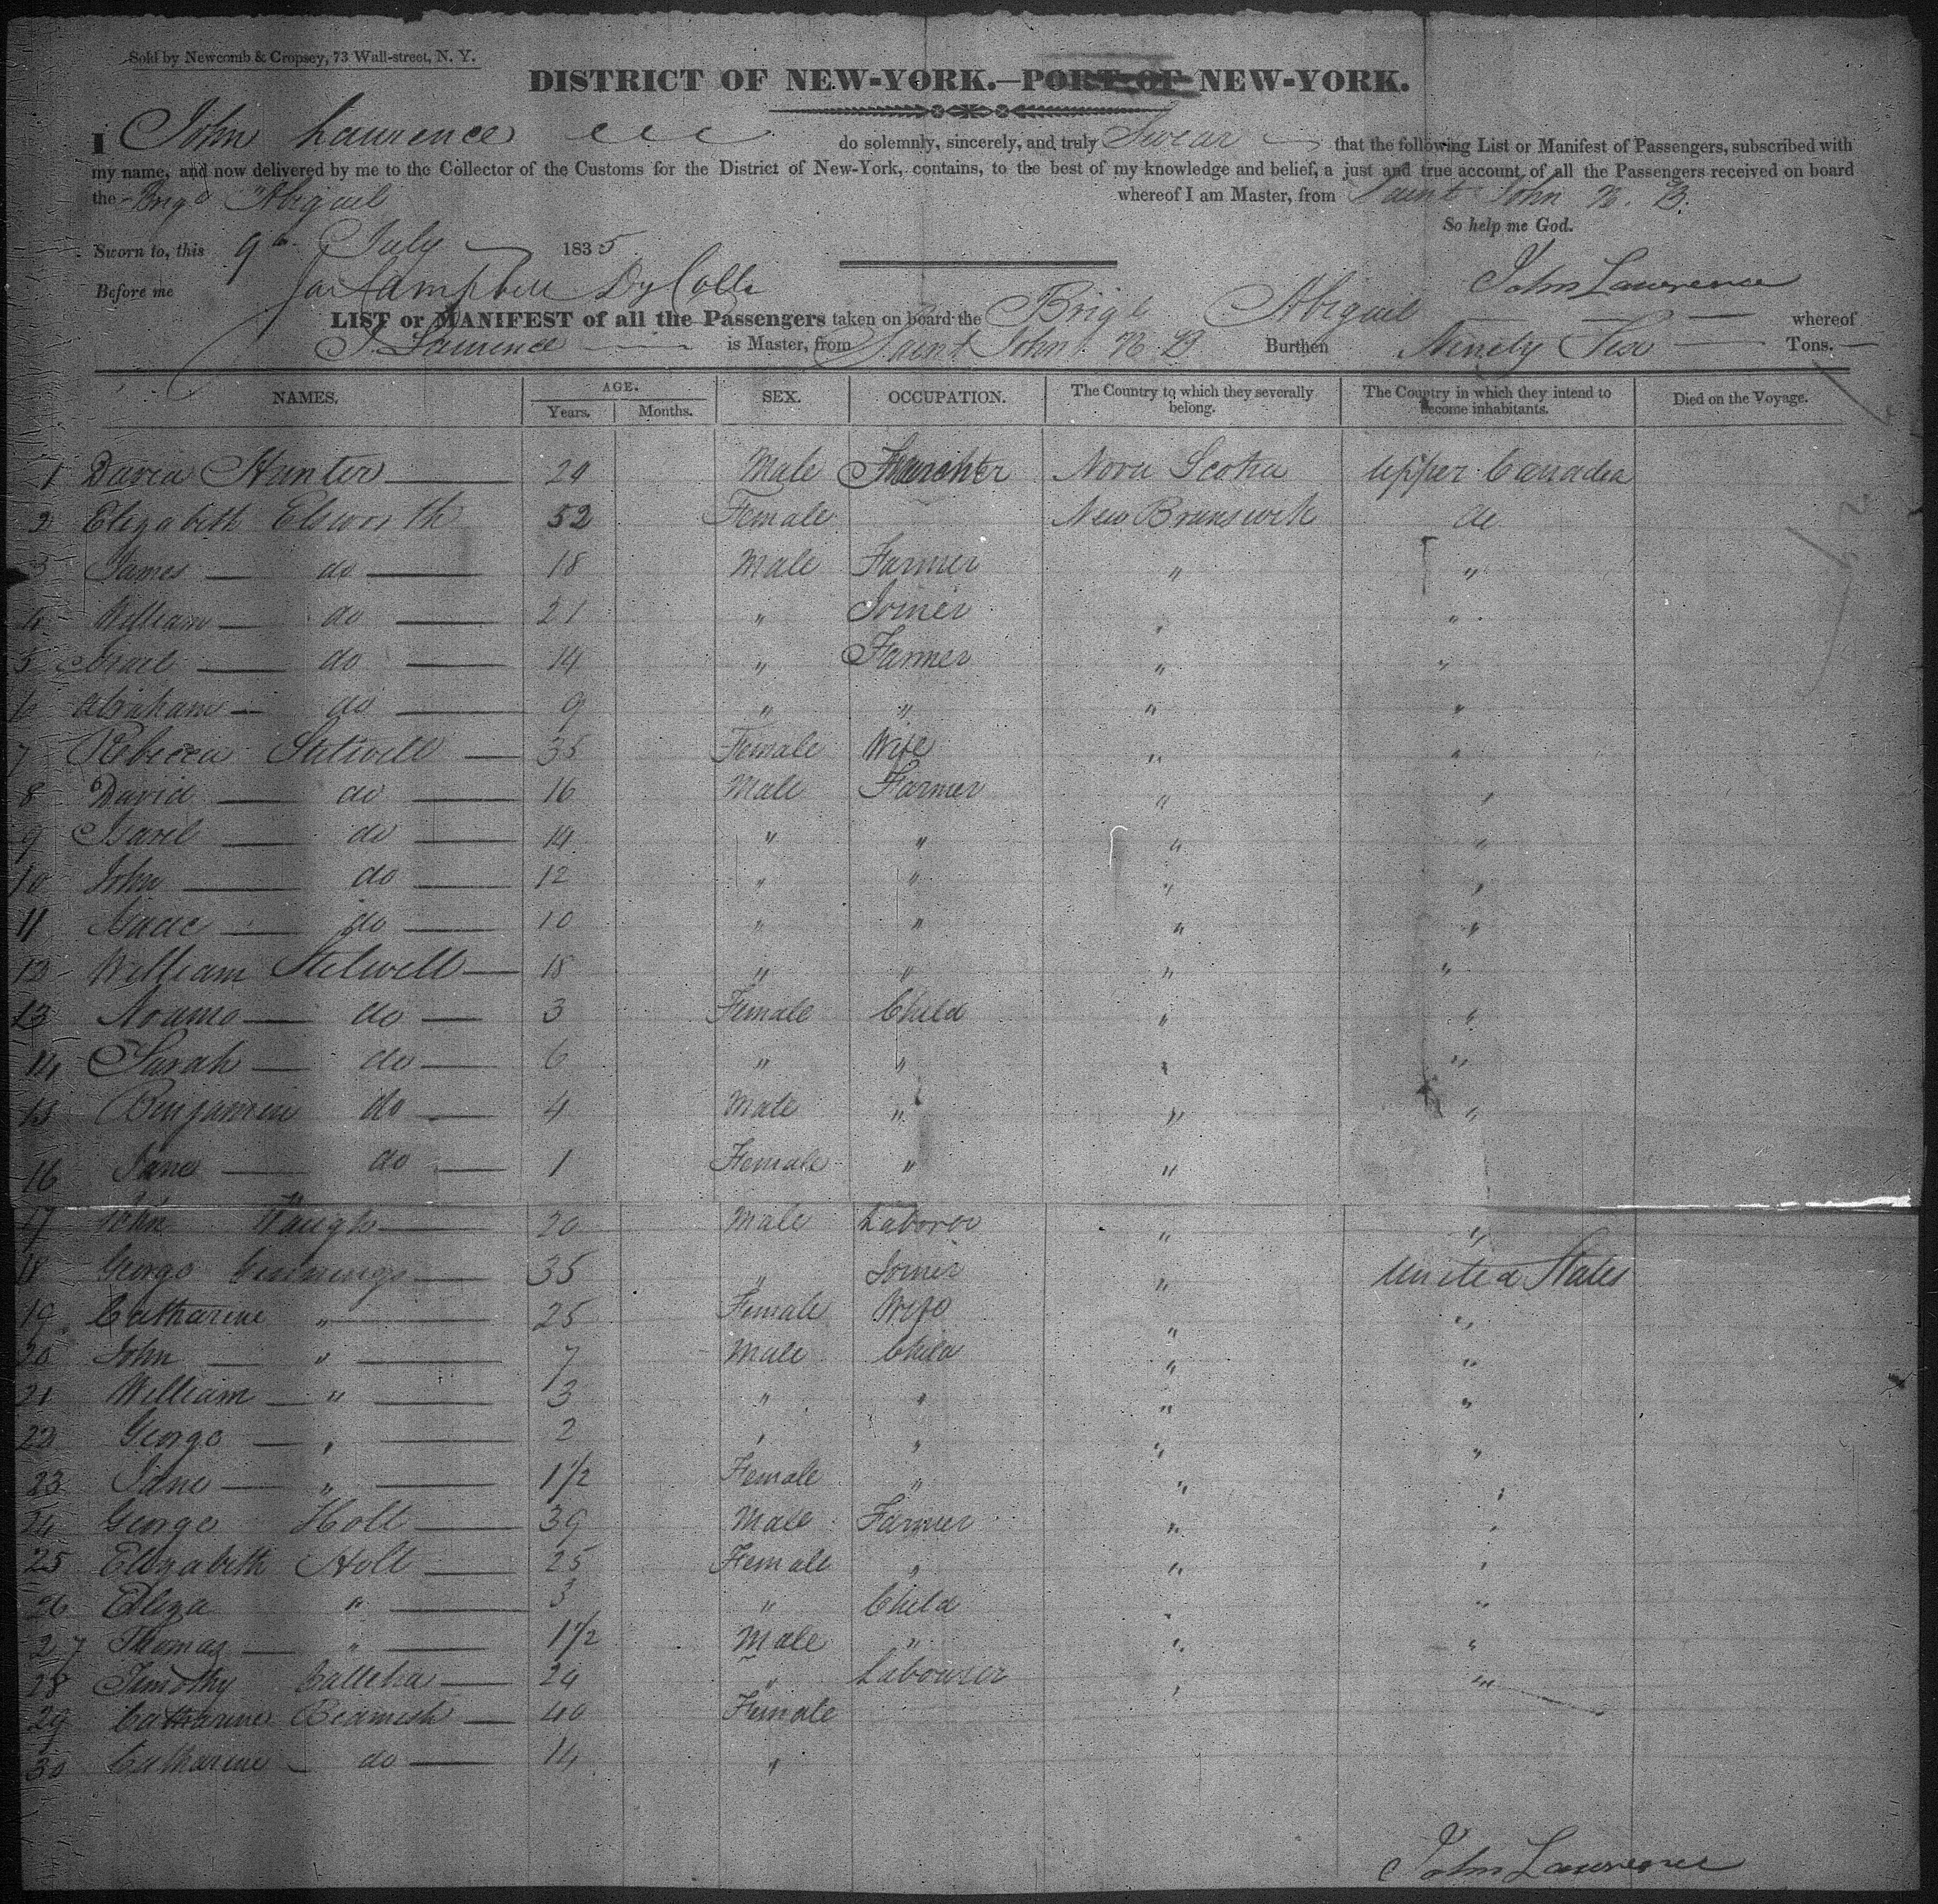 Sold by Newcomb & Cropsey, 73 Wall-street, N. Y.
DISTRICT OF NEW-YORK.—PORT OF NEW-YORK.
I John Laurence do solemnly, sincerely, and truly Swear that the following List or Manifest of Passengers, subscribed with
my name, and now delivered by me to the Collector of the Customs for the District of New-York, contains, to the best of my knowledge and belief, a just and true account of all the Passengers received on board
the Brig Abiguel whereof I am Master, from Saint John N. B.
So help me God.
Sworn to, this 9th July 1835
Before me Campbell Dy Colle John Lawrence
LIST or MANIFEST of all the Passengers taken on board the Brig Abiguel whereof
J. Laurence is Master, from Saint John N B Burthen Ninety Tons.
NAMES. AGE. SEX. OCCUPATION. The Country to which they severally belong. The Country in which they intend to become inhabitants. Died on the Voyage.
Years. Months.
1 David Hunter 24 Male Nova Scotia Upper Canada
2 Elizabeth Elsworth 52 Female New Brunswick do
3 James do 18 Male Farmer " "
4 William do 21 " Joiner " "
5 Israel do 14 " Farmer " "
6 Abraham do 9 " " " "
7 Rebecca Stilwell 35 Female Wife " "
8 David do 16 Male Farmer " "
9 Isarel do 14 " " " "
10 John do 12 " " " "
11 Isaac do 10 " " " "
12 William Stilwell 18 " " " "
13 do 3 Female Child " "
14 Sarah do 6 " " " "
15 Benjamin do 4 Male " " "
16 Jane do 1 Female " " "
17 John Waugh 20 Male Laborer " "
18 George Cummings 35 " Joiner " United States
19 Catharine " 25 Female Wife " "
20 John " 7 Male Child " "
21 William " 3 " " " "
22 George " 2 " " " "
23 Jane " 1 1/2 Female " " "
24 George Holt 39 Male Farmer " "
25 Elizabeth Holt 25 Female " " "
26 Eliza " 3 " Child " "
27 Thomas " 1 1/2 Male " " "
28 Timothy 24 " Labourer " "
29 Catharine Beamish 40 Female
30 Catharine do 14 "
John Lawrence